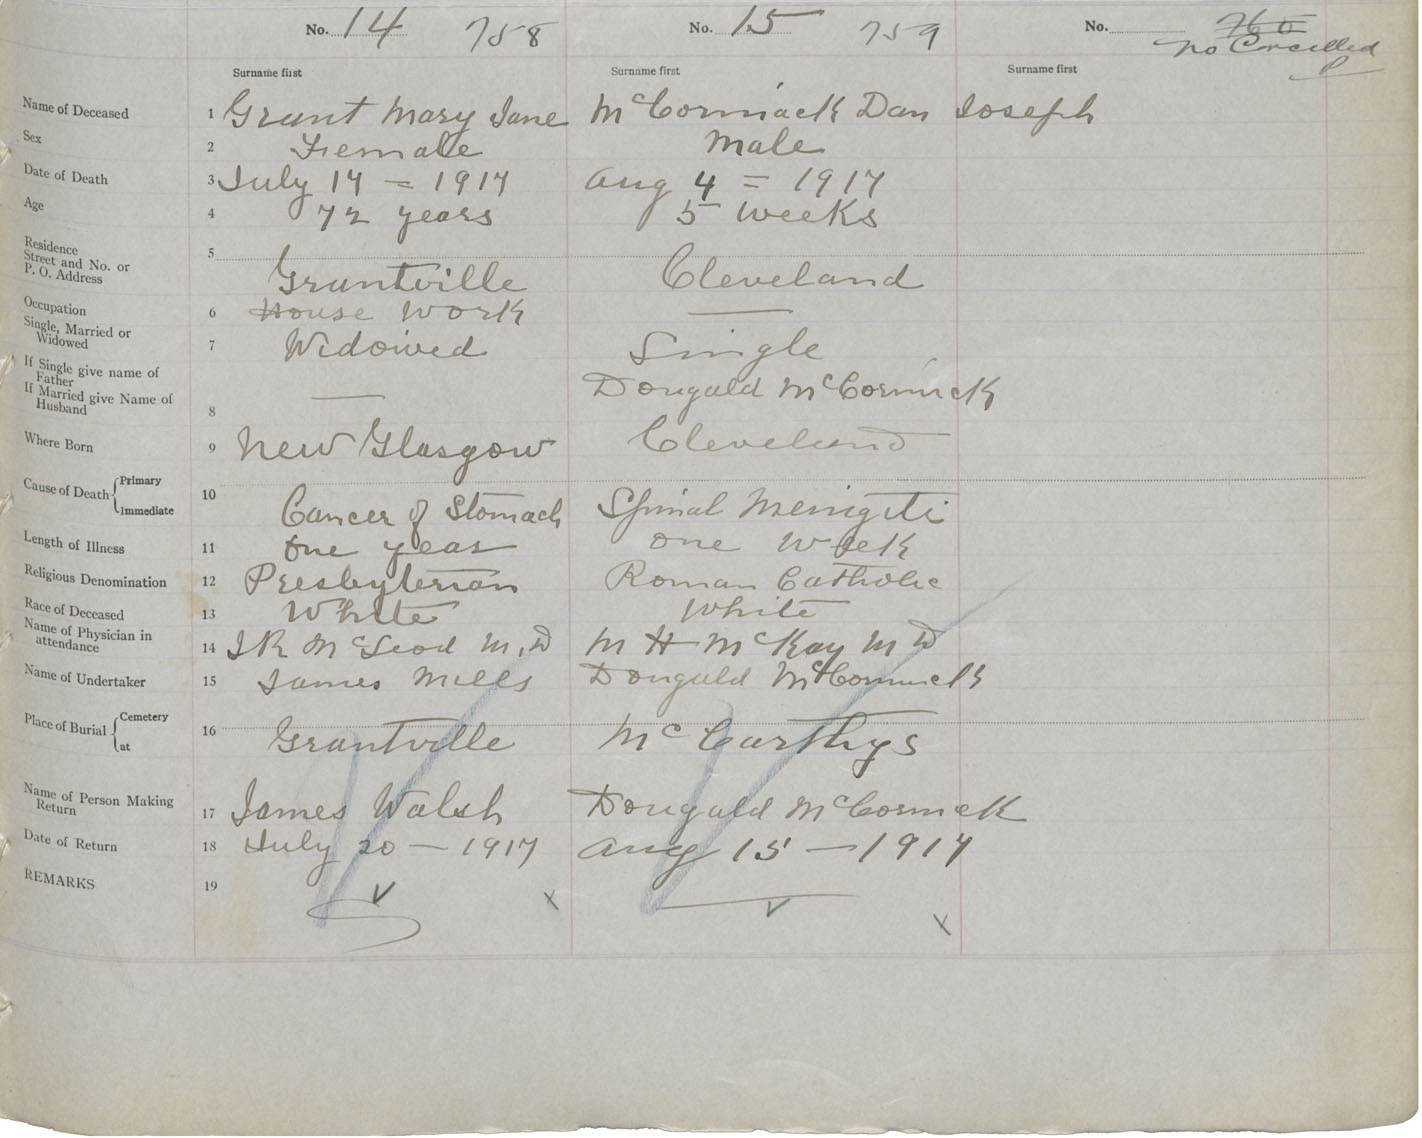 No. 14 758 No. 15 759 No. 760
no Cancelled
Surname first Surname first Surname first
Name of Deceased 1 Grant Mary Jane McCormack Dan Joseph
Sex 2 Female Male
Date of Death 3 July 17 = 1917 Aug 4 = 1917
Age 4 72 years 5 weeks
Residence
Street and No. or
P. O. Address 5 Grantville Cleveland
Occupation 6 House Work —
Single, Married or
Widowed 7 Widowed Single
If Single give name of
Father
If Married give Name of
Husband 8 — Dougald McCormick
Where Born 9 New Glasgow Cleveland
Cause of Death { Primary
Immediate 10 Cancer of Stomach Spinal Meingiti
Length of Illness 11 One year one week
Religious Denomination 12 Presbyterian Roman Catholic
Race of Deceased 13 White White
Name of Physician in
attendance 14 J R McLeod M.D M H McKay M D
Name of Undertaker 15 James Mills Dougald McCormick
Place of Burial { Cemetery
at 16 Grantville McCarthys
Name of Person Making
Return 17 James Walsh Dougald McCormick
Date of Return 18 July 20 — 1917 Aug 15 — 1917
REMARKS 19